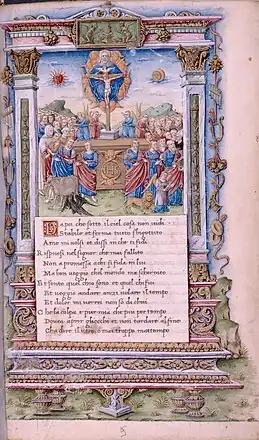 Da poi che sotto il ciel cosa non vidi
Stabile et ferma tutto sbigotito
A me mi volsi et dissi in che ti fidi
Risposi nel signor che mai fallito
Non a promessa a chi si fida in lui
Ma ben veggio chel mondo ma schernito
Et sento quel chio sono et quel chi fui
Et veggio andare anzi volare il tempo
Et doler mi vorrei ne so di chui
Che la colpa e pur mia che piu per tempo
Dovea aprir gliocchi et non tardare al fine
Cha dire il vero o mai troppo mattempo